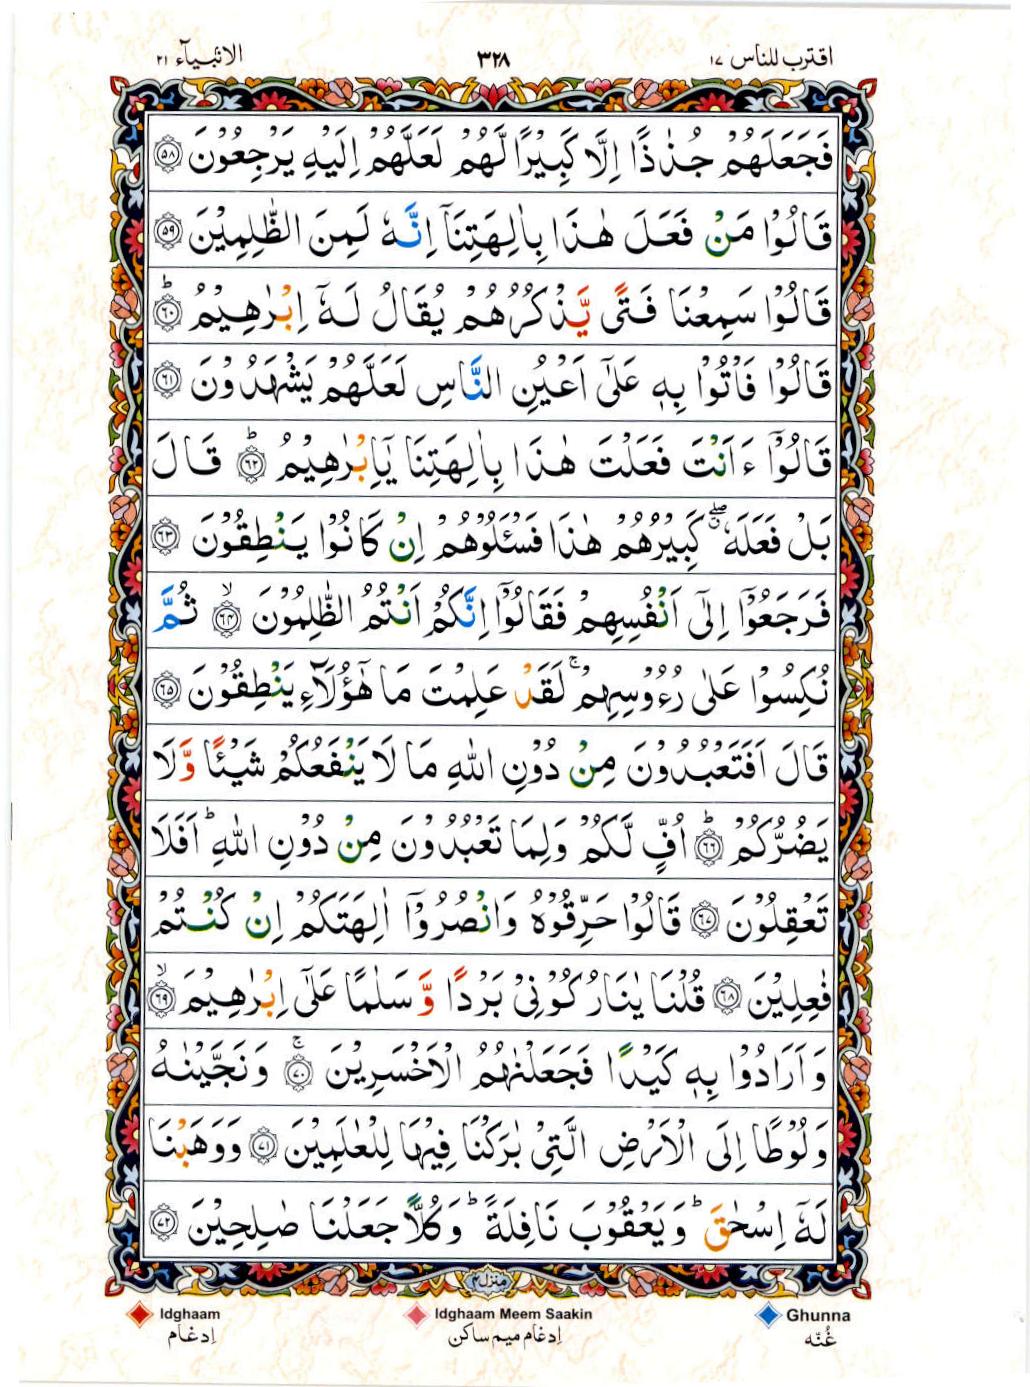 اقترب للناس ١٧
٣٢٨
الانبیآء ٢١
فَجَعَلَهُمْ جُذٰذًا اِلَّا كَبِيْرًا لَّهُمْ لَعَلَّهُمْ اِلَيْهِ يَرْجِعُوْنَ ﴿٥٨﴾
قَالُوْا مَنْ فَعَلَ هٰذَا بِاٰلِهَتِنَاۤ اِنَّهٗ لَمِنَ الظّٰلِمِيْنَ ﴿٥٩﴾
قَالُوْا سَمِعْنَا فَتًى يَّذْكُرُهُمْ يُقَالُ لَهٗۤ اِبْرٰهِيْمُ ﴿٦٠﴾ؕ
قَالُوْا فَاْتُوْا بِهٖ عَلٰۤى اَعْيُنِ النَّاسِ لَعَلَّهُمْ يَشْهَدُوْنَ ﴿٦١﴾
قَالُوْۤا ءَاَنْتَ فَعَلْتَ هٰذَا بِاٰلِهَتِنَا يٰۤاِبْرٰهِيْمُ ﴿٦٢﴾ؕ قَالَ
بَلْ فَعَلَهٗ ۖۗ كَبِيْرُهُمْ هٰذَا فَسْـَٔلُوْهُمْ اِنْ كَانُوْا يَنْطِقُوْنَ ﴿٦٣﴾
فَرَجَعُوْۤا اِلٰۤى اَنْفُسِهِمْ فَقَالُوْۤا اِنَّكُمْ اَنْتُمُ الظّٰلِمُوْنَ ﴿٦٤﴾ۙ ثُمَّ
نُكِسُوْا عَلٰى رُءُوْسِهِمْ ۚ لَقَدْ عَلِمْتَ مَا هٰۤؤُلَآءِ يَنْطِقُوْنَ ﴿٦٥﴾
قَالَ اَفَتَعْبُدُوْنَ مِنْ دُوْنِ اللّٰهِ مَا لَا يَنْفَعُكُمْ شَيْـًٔا وَّلَا
يَضُرُّكُمْ ﴿٦٦﴾ؕ اُفٍّ لَّكُمْ وَلِمَا تَعْبُدُوْنَ مِنْ دُوْنِ اللّٰهِ ؕ اَفَلَا
تَعْقِلُوْنَ ﴿٦٧﴾ قَالُوْا حَرِّقُوْهُ وَانْصُرُوْۤا اٰلِهَتَكُمْ اِنْ كُنْتُمْ
فٰعِلِيْنَ ﴿٦٨﴾ قُلْنَا يٰنَارُ كُوْنِيْ بَرْدًا وَّ سَلٰمًا عَلٰۤى اِبْرٰهِيْمَ ﴿٦٩﴾ۙ
وَ اَرَادُوْا بِهٖ كَيْدًا فَجَعَلْنٰهُمُ الْاَخْسَرِيْنَ ﴿٧٠﴾ۚ وَ نَجَّيْنٰهُ
وَ لُوْطًا اِلَى الْاَرْضِ الَّتِيْ بٰرَكْنَا فِيْهَا لِلْعٰلَمِيْنَ ﴿٧١﴾ وَ وَهَبْنَا
لَهٗۤ اِسْحٰقَ ؕ وَ يَعْقُوْبَ نَافِلَةً ؕ وَ كُلًّا جَعَلْنَا صٰلِحِيْنَ ﴿٧٢﴾
منزل ٤
Idghaam
Idghaam Meem Saakin
Ghunna
اِدغام
اِدغام میم ساکن
غُنّه